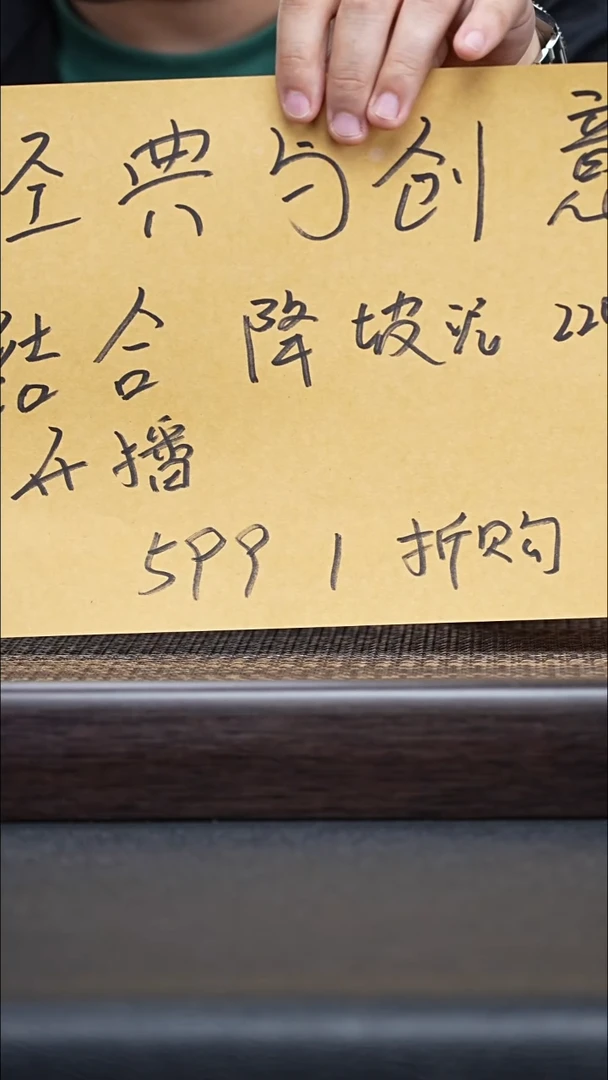 经典与创意
结合 降坡泥 220
开播
599 1 折购